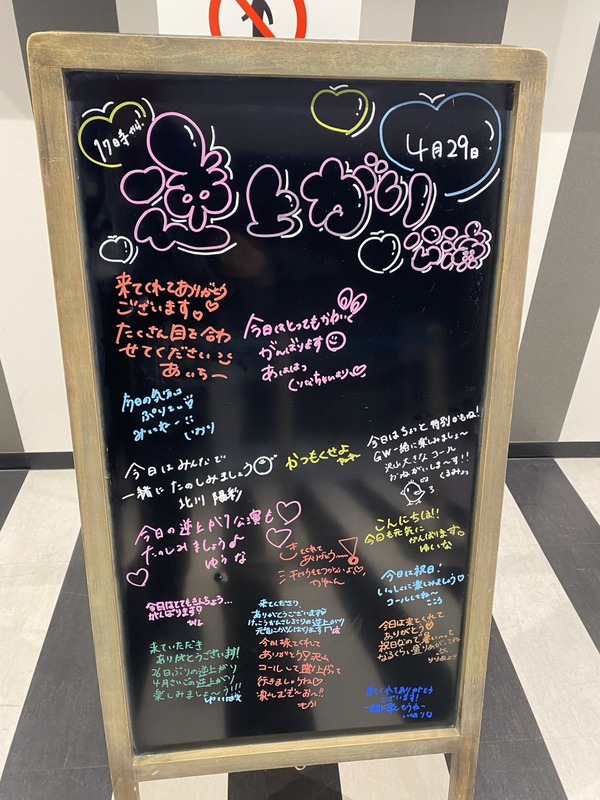 17時から!
4月29日
逆上がり
公演
来てくれてありがとう
ございます
たくさん目を合わ
せてください
あいちー
今日はとってもかわいく
がんばります
あははっ
くりなちゃんより
今日の気分は
みいねー
しおり
今日はみんなで
一緒にたのしみましょう
北川 陽彩
かつもくせよ
今日はちょっと特別かもね!
GW一緒に楽しみましょ〜
沢山大きなコール
おねがいしま〜す!!
くるみより
今日の逆上がり公演も
たのしみましょう♪
ゆうな
きてくれて
ありがとう〜
こんにちは!!
今日も元気に
がんばります
ゆいな
今日は祝日!
いっしょに楽しみましょう
コールしてね〜
こころ
今日はとてもきんちょう…
がんばります!
来てくださり
ありがとうございます
けっこうひさしぶりの逆上がり
元気にがんばります
今日は来てくれて
ありがとう
祝日なので暑い〜って
なるくらい盛りあがって
来ていただき
ありがとうございます!
26日ぶりの逆上がり
4月さいごの逆上がり
楽しみましょ〜う!!!
今日は来てくれて
ありがとう♡沢山
コールして盛り上がって
行きましょうね♡
楽しむぞぉお〜!!
もか
来てくれてありがとう
ございます!